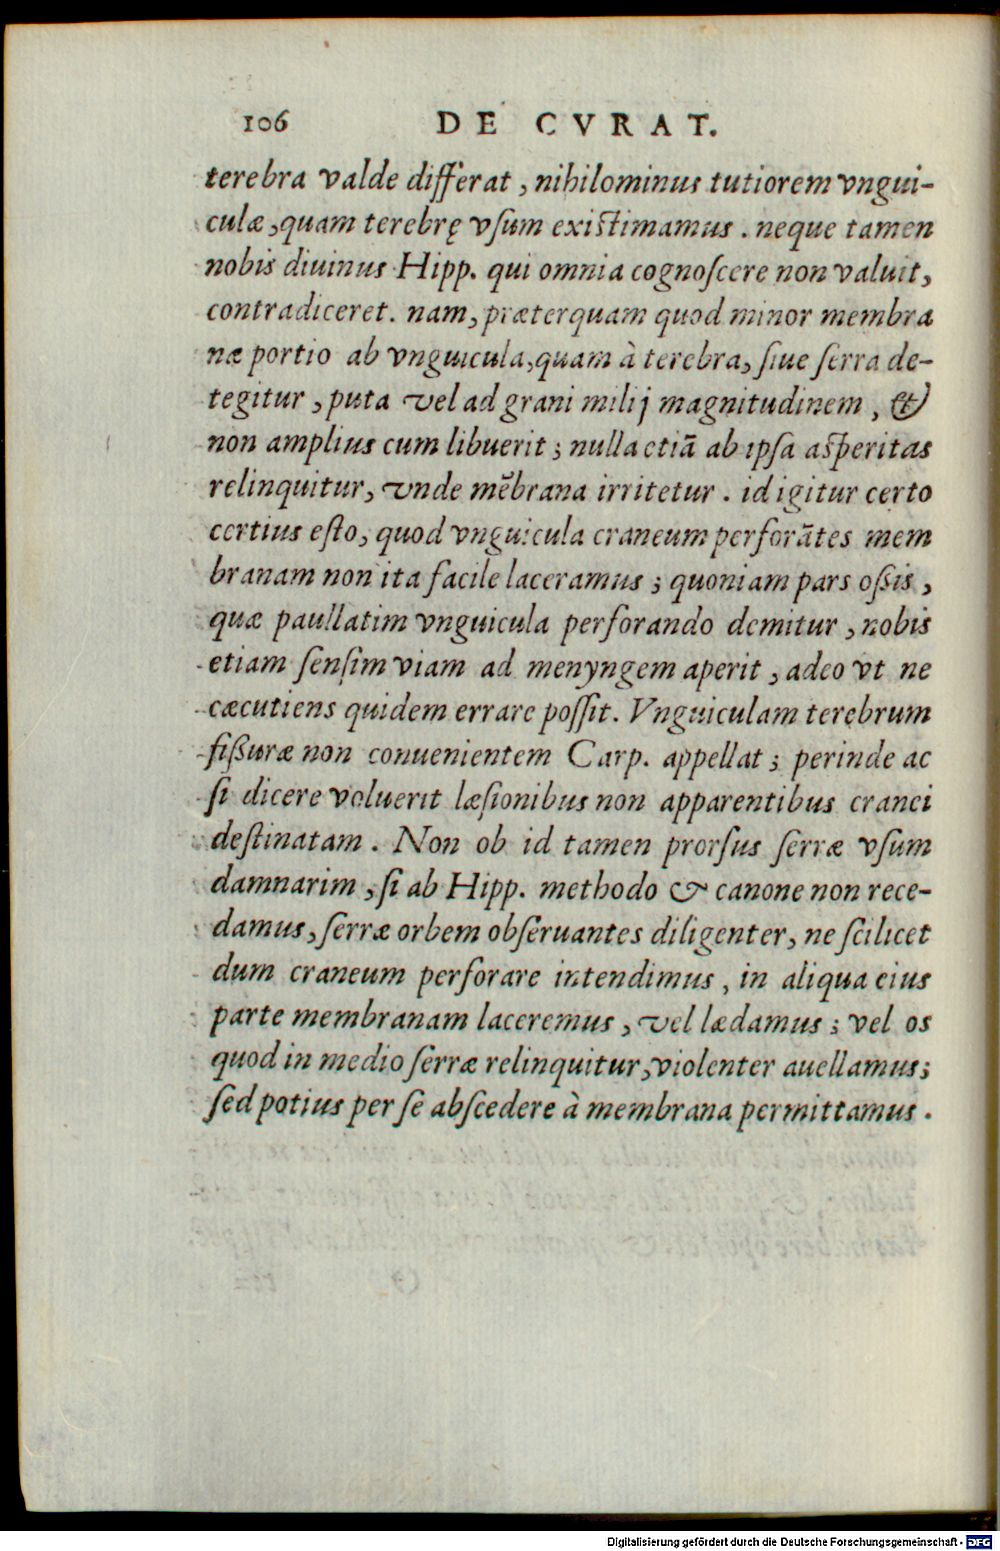 106 DE CVRAT.
terebra valde differat, nihilominus tutiorem vngui-
culæ, quam terebrę vsum existimamus. neque tamen
nobis diuinus Hipp. qui omnia cognoscere non valuit,
contradiceret. nam, præterquam quod minor membra
næ portio ab vnguicula, quam à terebra, siue serra de-
tegitur, puta vel ad grani milij magnitudinem, &
non amplius cum libuerit; nulla etiā ab ipsa asperitas
relinquitur, vnde mēbrana irritetur. id igitur certo
certius esto, quod vnguicula craneum perforātes mem
branam non ita facile laceramus; quoniam pars ossis,
quæ paullatim vnguicula perforando demitur, nobis
etiam sensim viam ad menyngem aperit, adeo vt ne
cæcutiens quidem errare possit. Vnguiculam terebrum
fissuræ non conuenientem Carp. appellat; perinde ac
si dicere voluerit læsionibus non apparentibus cranei
destinatam. Non ob id tamen prorsus serræ vsum
damnarim, si ab Hipp. methodo & canone non rece-
damus, serræ orbem obseruantes diligenter, ne scilicet
dum craneum perforare intendimus, in aliqua eius
parte membranam laceremus, vel lædamus; vel os
quod in medio serræ relinquitur, violenter auellamus;
sed potius per se abscedere à membrana permittamus.
Digitalisierung gefördert durch die Deutsche Forschungsgemeinschaft - DFG